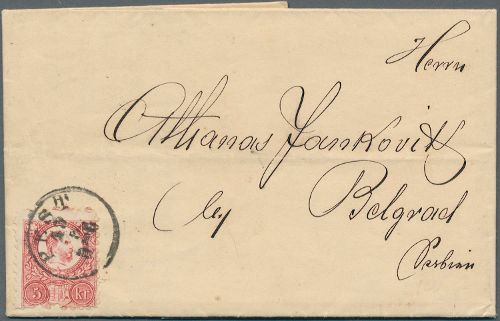 Herrn
Athanas Jankovits
Belgrad
Serbien
PEST
5 KR